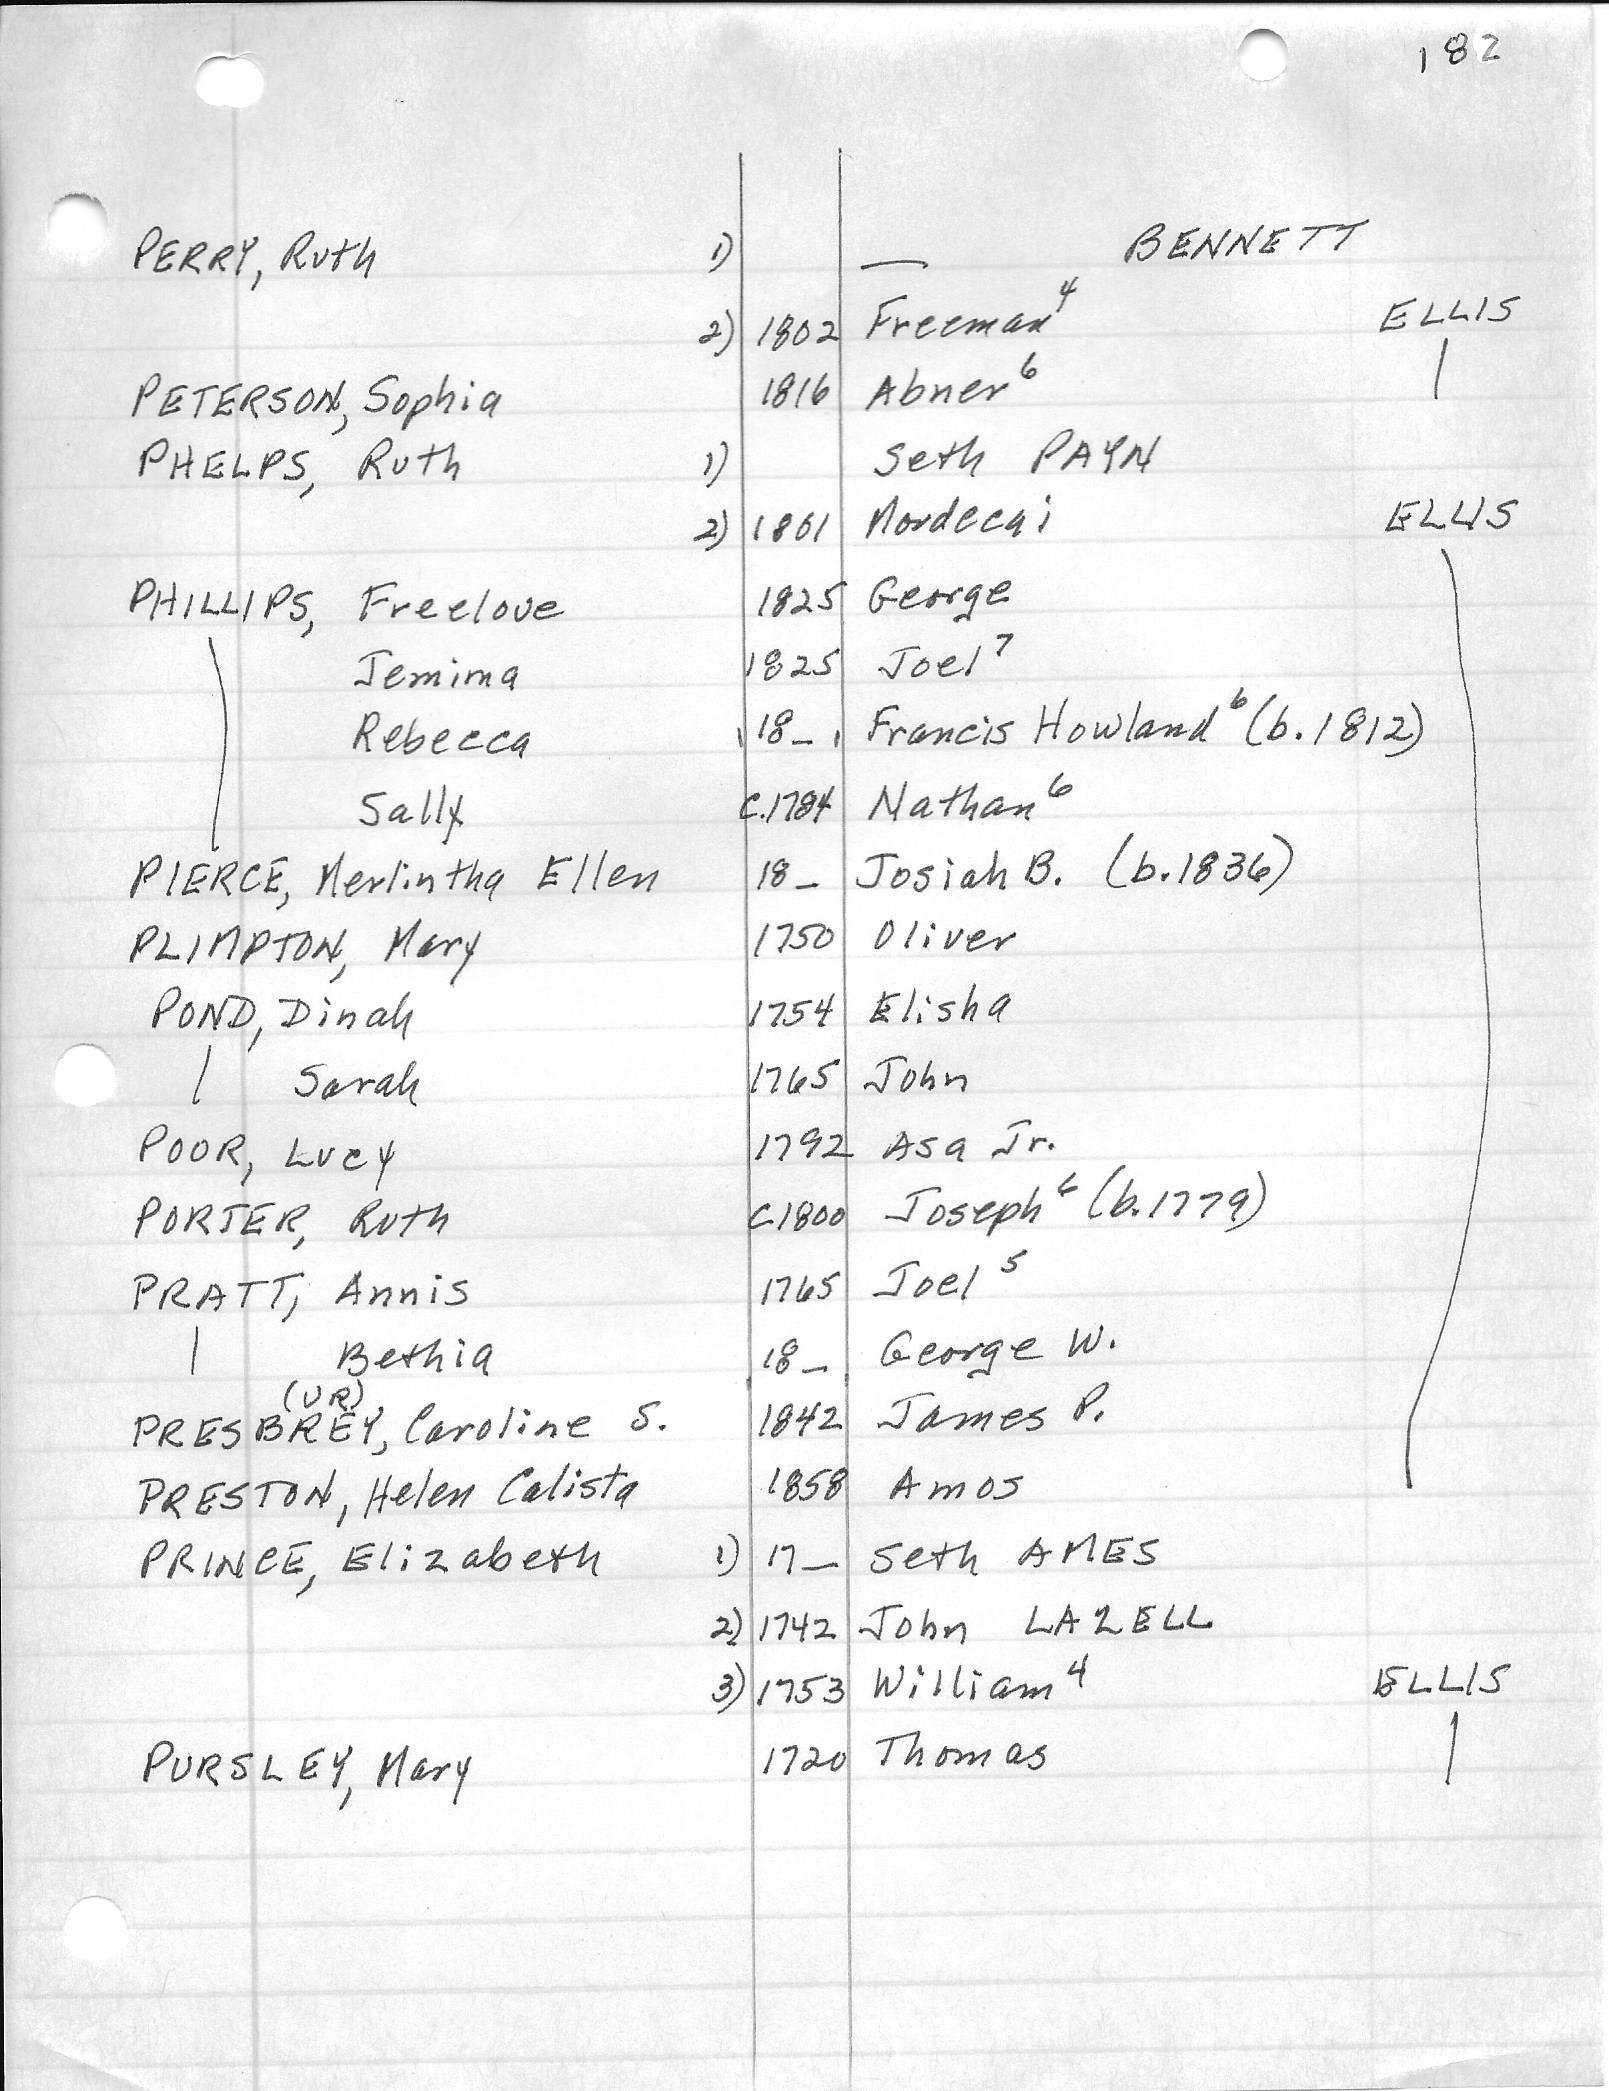 182
PERRY, Ruth 1) — BENNETT
2) 1802 Freeman⁴ ELLIS
PETERSON, Sophia 1816 Abner⁶
PHELPS, Ruth 1) Seth PAYN
2) 1801 Mordecai ELLIS
PHILLIPS, Freelove 1825 George
Jemima 1825 Joel⁷
Rebecca 18_ Francis Howland⁶ (b. 1812)
Sally c.1784 Nathan⁶
PIERCE, Merlintha Ellen 18_ Josiah B. (b. 1836)
PLIMPTON, Mary 1750 Oliver
POND, Dinah 1754 Elisha
Sarah 1765 John
POOR, Lucy 1792 Asa Jr.
PORTER, Ruth c.1800 Joseph⁶ (b. 1779)
PRATT, Annis 1765 Joel⁵
Bethia 18_ George W.
(UR)
PRESBREY, Caroline S. 1842 James P.
PRESTON, Helen Calista 1858 Amos
PRINCE, Elizabeth 1) 17_ Seth AMES
2) 1742 John LAZELL
3) 1753 William⁴ ELLIS
PURSLEY, Mary 1720 Thomas